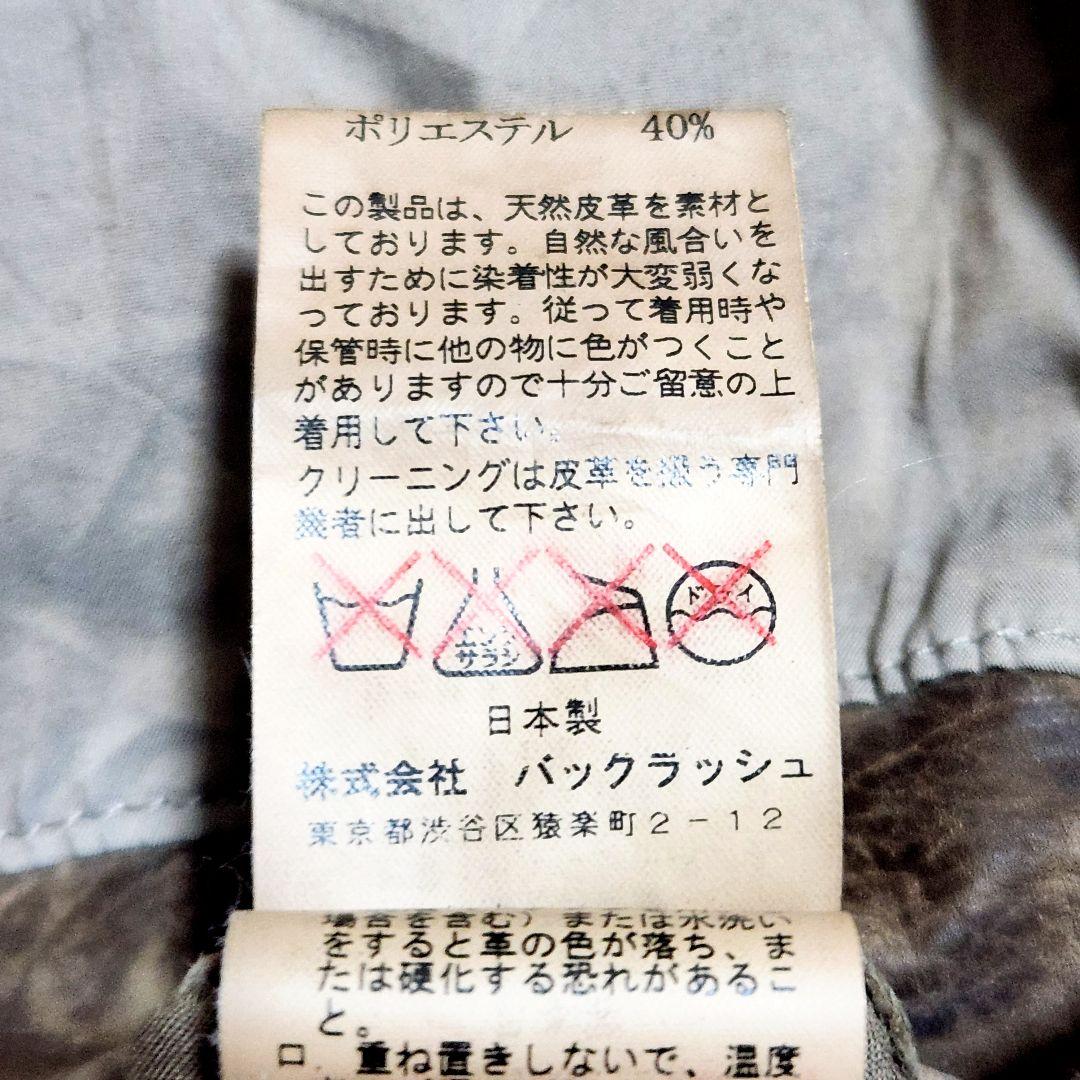 ポリエステル 40%
この製品は、天然皮革を素材と
しております。自然な風合いを
出すために染着性が大変弱くな
っております。従って着用時や
保管時に他の物に色がつくこと
がありますので十分ご留意の上
着用して下さい。
クリーニングは皮革を扱う専門
業者に出して下さい。
エンソ
サラシ
ドライ
日本製
株式会社 バックラッシュ
東京都渋谷区猿楽町2-12
場合を含む)または水洗い
をすると革の色が落ち、ま
たは硬化する恐れがあるこ
と。
ロ. 重ね置きしないで、温度